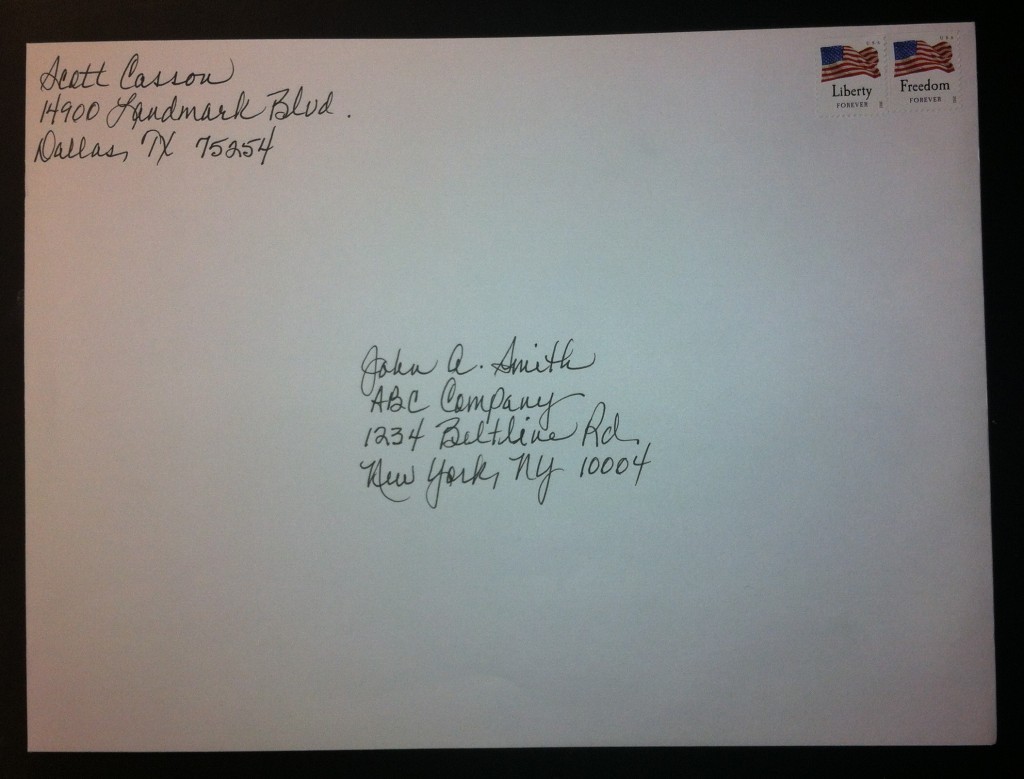 Scott Casson
14900 Landmark Blvd.
Dallas, TX 75254
USA
Liberty
FOREVER
USA
Freedom
FOREVER
John A. Smith
ABC Company
1234 Beltline Rd.
New York, NY 10004